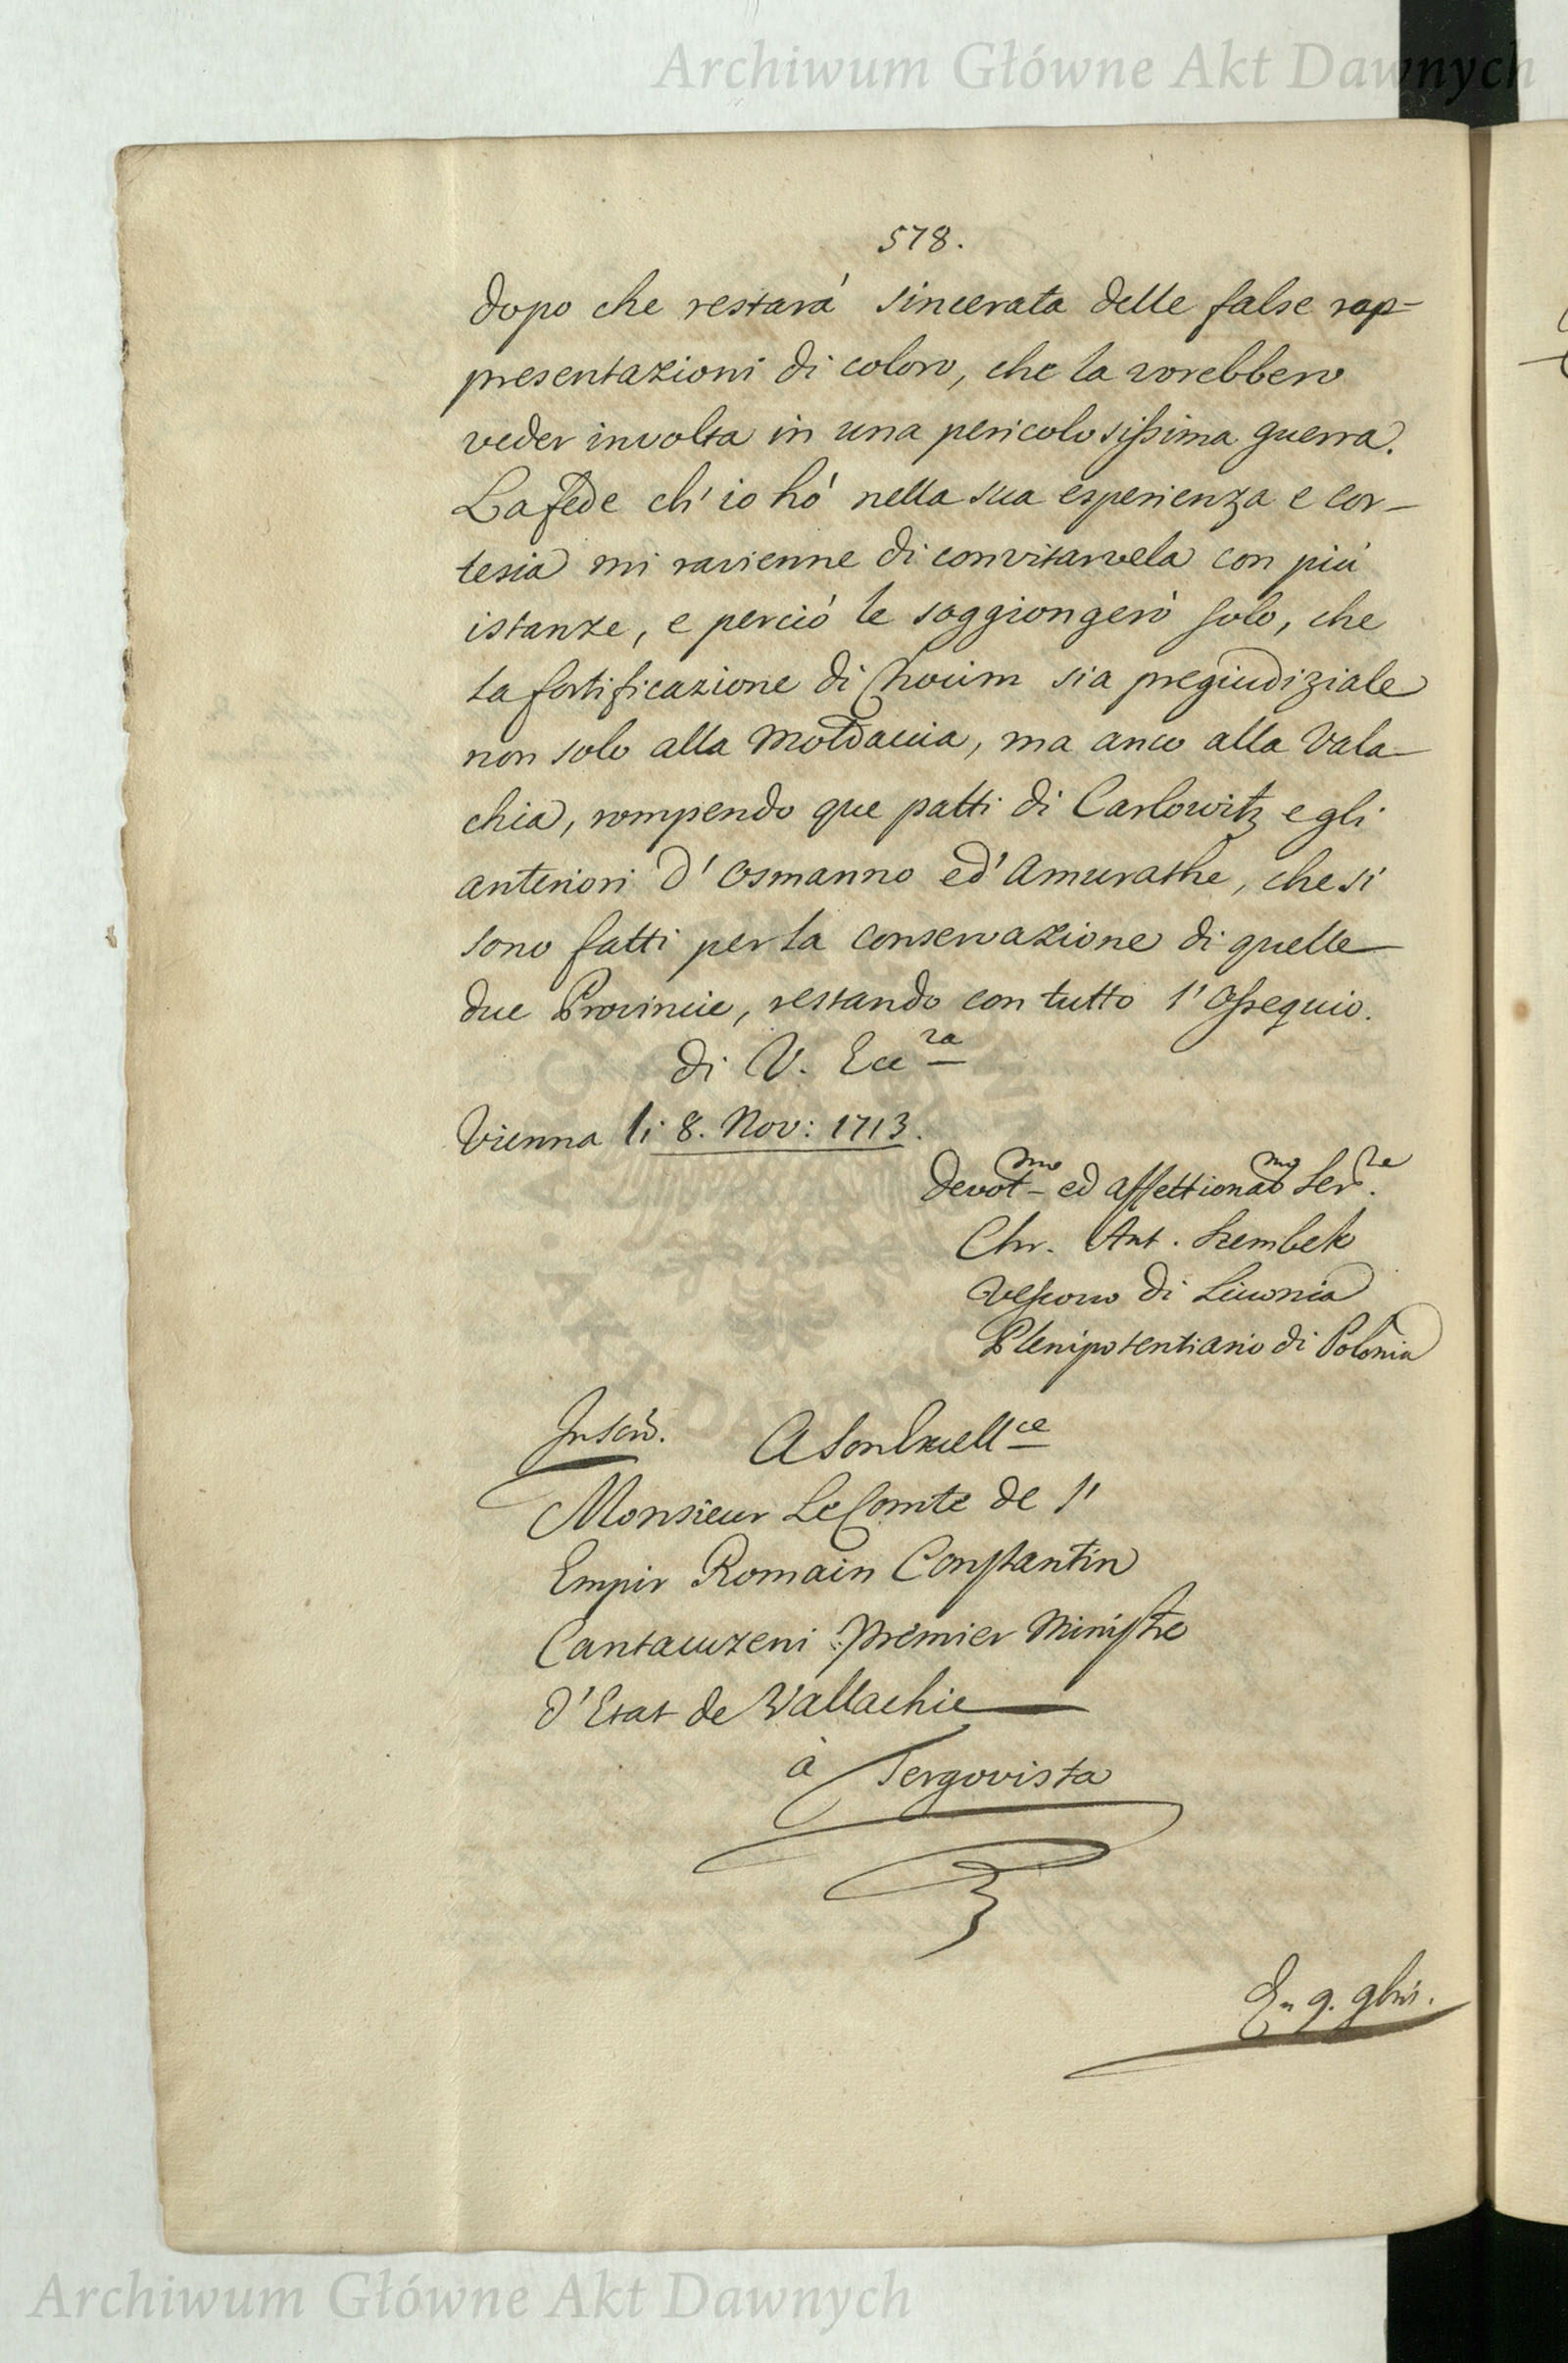 Archiwum Główne Akt Dawnych
578.
dopo che restará sincerata delle false rap-
presentazioni di coloro, che la vorebbero
veder involta in una pericolosissima guerra.
La fede ch' io hó nella sua esperienza e cor-
tesia mi ravienne di convitarvela con piú
istanze, e perció le soggiongeró solo, che
la fortificazione di Chocim sia pregiudiziale
non solo alla Moldaccia, ma anco alla Vala-
chia, rompendo que patti di Carlowitz e gli
anteriori d' Osmanno ed' Amurathe, che si
sono fatti per la conservazione di quelle
due Provincie, restando con tutto l' Ossequio.
di V. Ecc.za
Vienna li 8. Nov: 1713.
Devot.mo ed affettionat.mo Ser.re
Chr. Ant. Szembek
Vescovo di Livonia
Plenipotentiario di Polonia
Inscr. A Son Excell.ce
Monsieur Le Comte de l'
Empir Romain Constantin
Cantacuzeni Premier Ministre
d' Etat de Vallachie
à Tergovista
Archiwum Główne Akt Dawnych